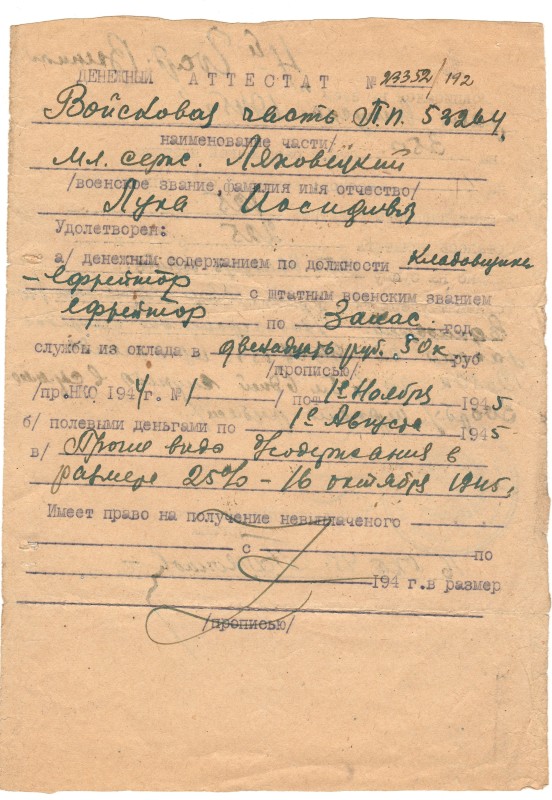 ДЕНЕЖНЫЙ АТТЕСТАТ № 23352/192
Войсковая часть П.П. 53264,
наименование части/
Мл. серж. Ляховецкий
/военское звание фамилия имя отчество/
Лука Иосифовъ
Удолетворен:
а/ денежным содержанием по должности Кладовщика
– ефрейтор с штатным военским званием
ефрейтор по Запас. год
службы из оклада в двенадцать руб. 50к руб
/прописью/
/пр.НКО 1944г. № 1 / по 1е Ноября 1945
б/ полевыми деньгами по 1е Августа 1945
в/ содержания в
размере 25% – 16 октября 1945г
Имеет право на получение невыплаченого
с по
194 г.в размер
/прописью/